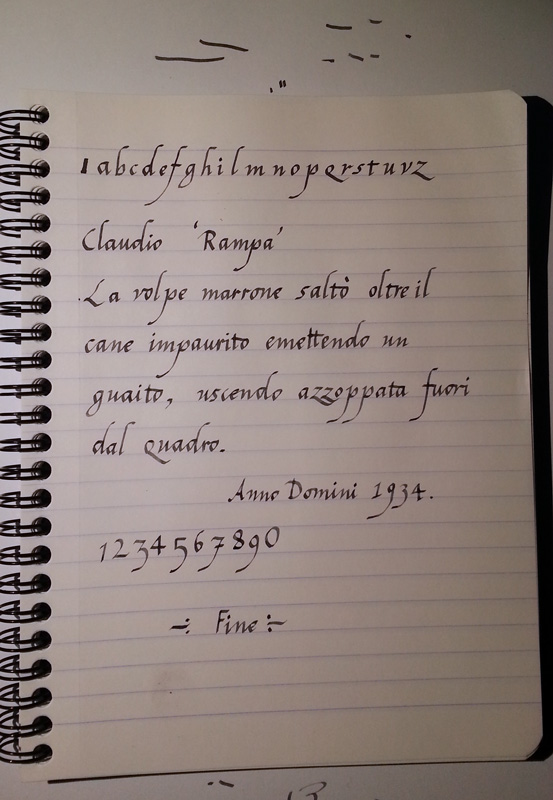 a b c d e f g h i l m n o p q r s t u v z
Claudio 'Rampa'
La volpe marrone saltò oltre il
cane impaurito emettendo un
guaito, uscendo azzoppata fuori
dal quadro.
Anno Domini 1934.
1 2 3 4 5 6 7 8 9 0
Fine